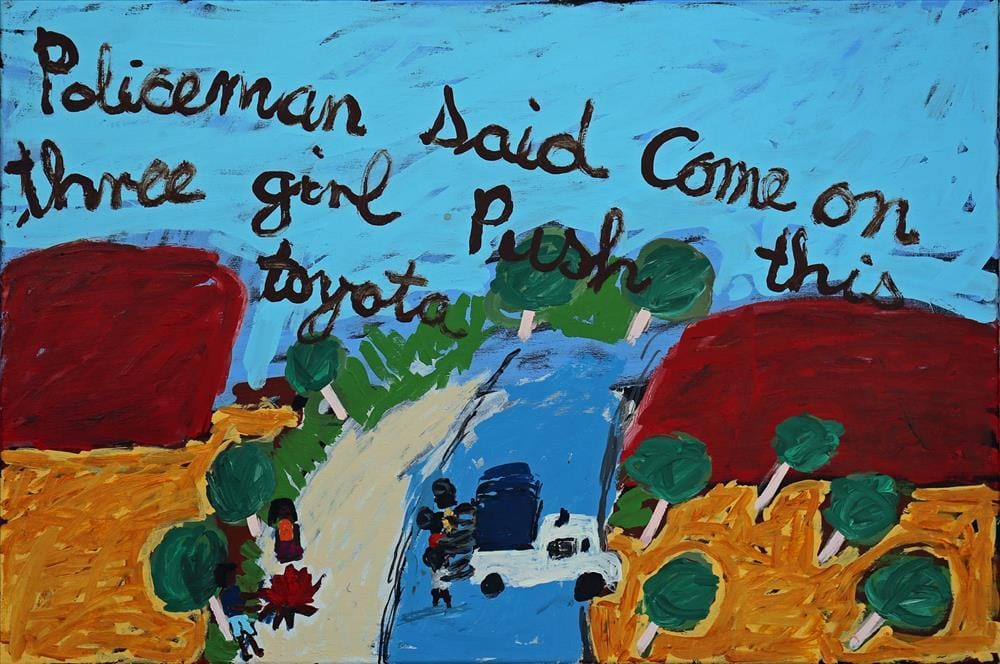 Policeman said Come on
three girl Push this
toyota